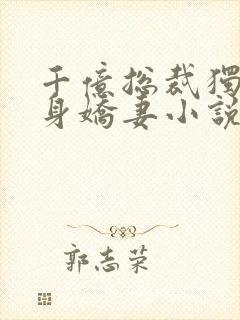 千億総裁獨
身嬌妻小說
郭志荣